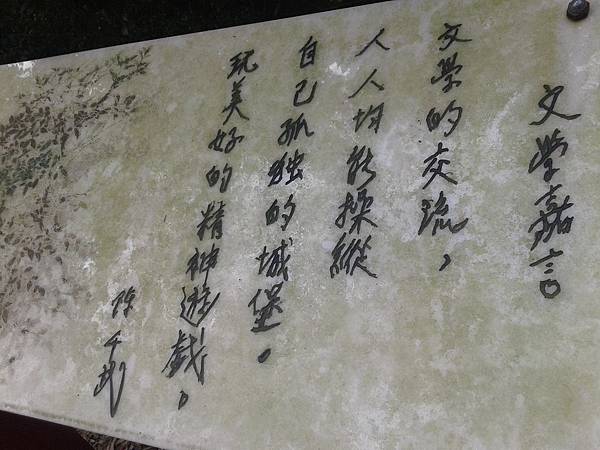 文學嘉言
文學的交流，
人人均能操縱
自己孤独的城堡。
玩美好的精神遊戲。
陳千武